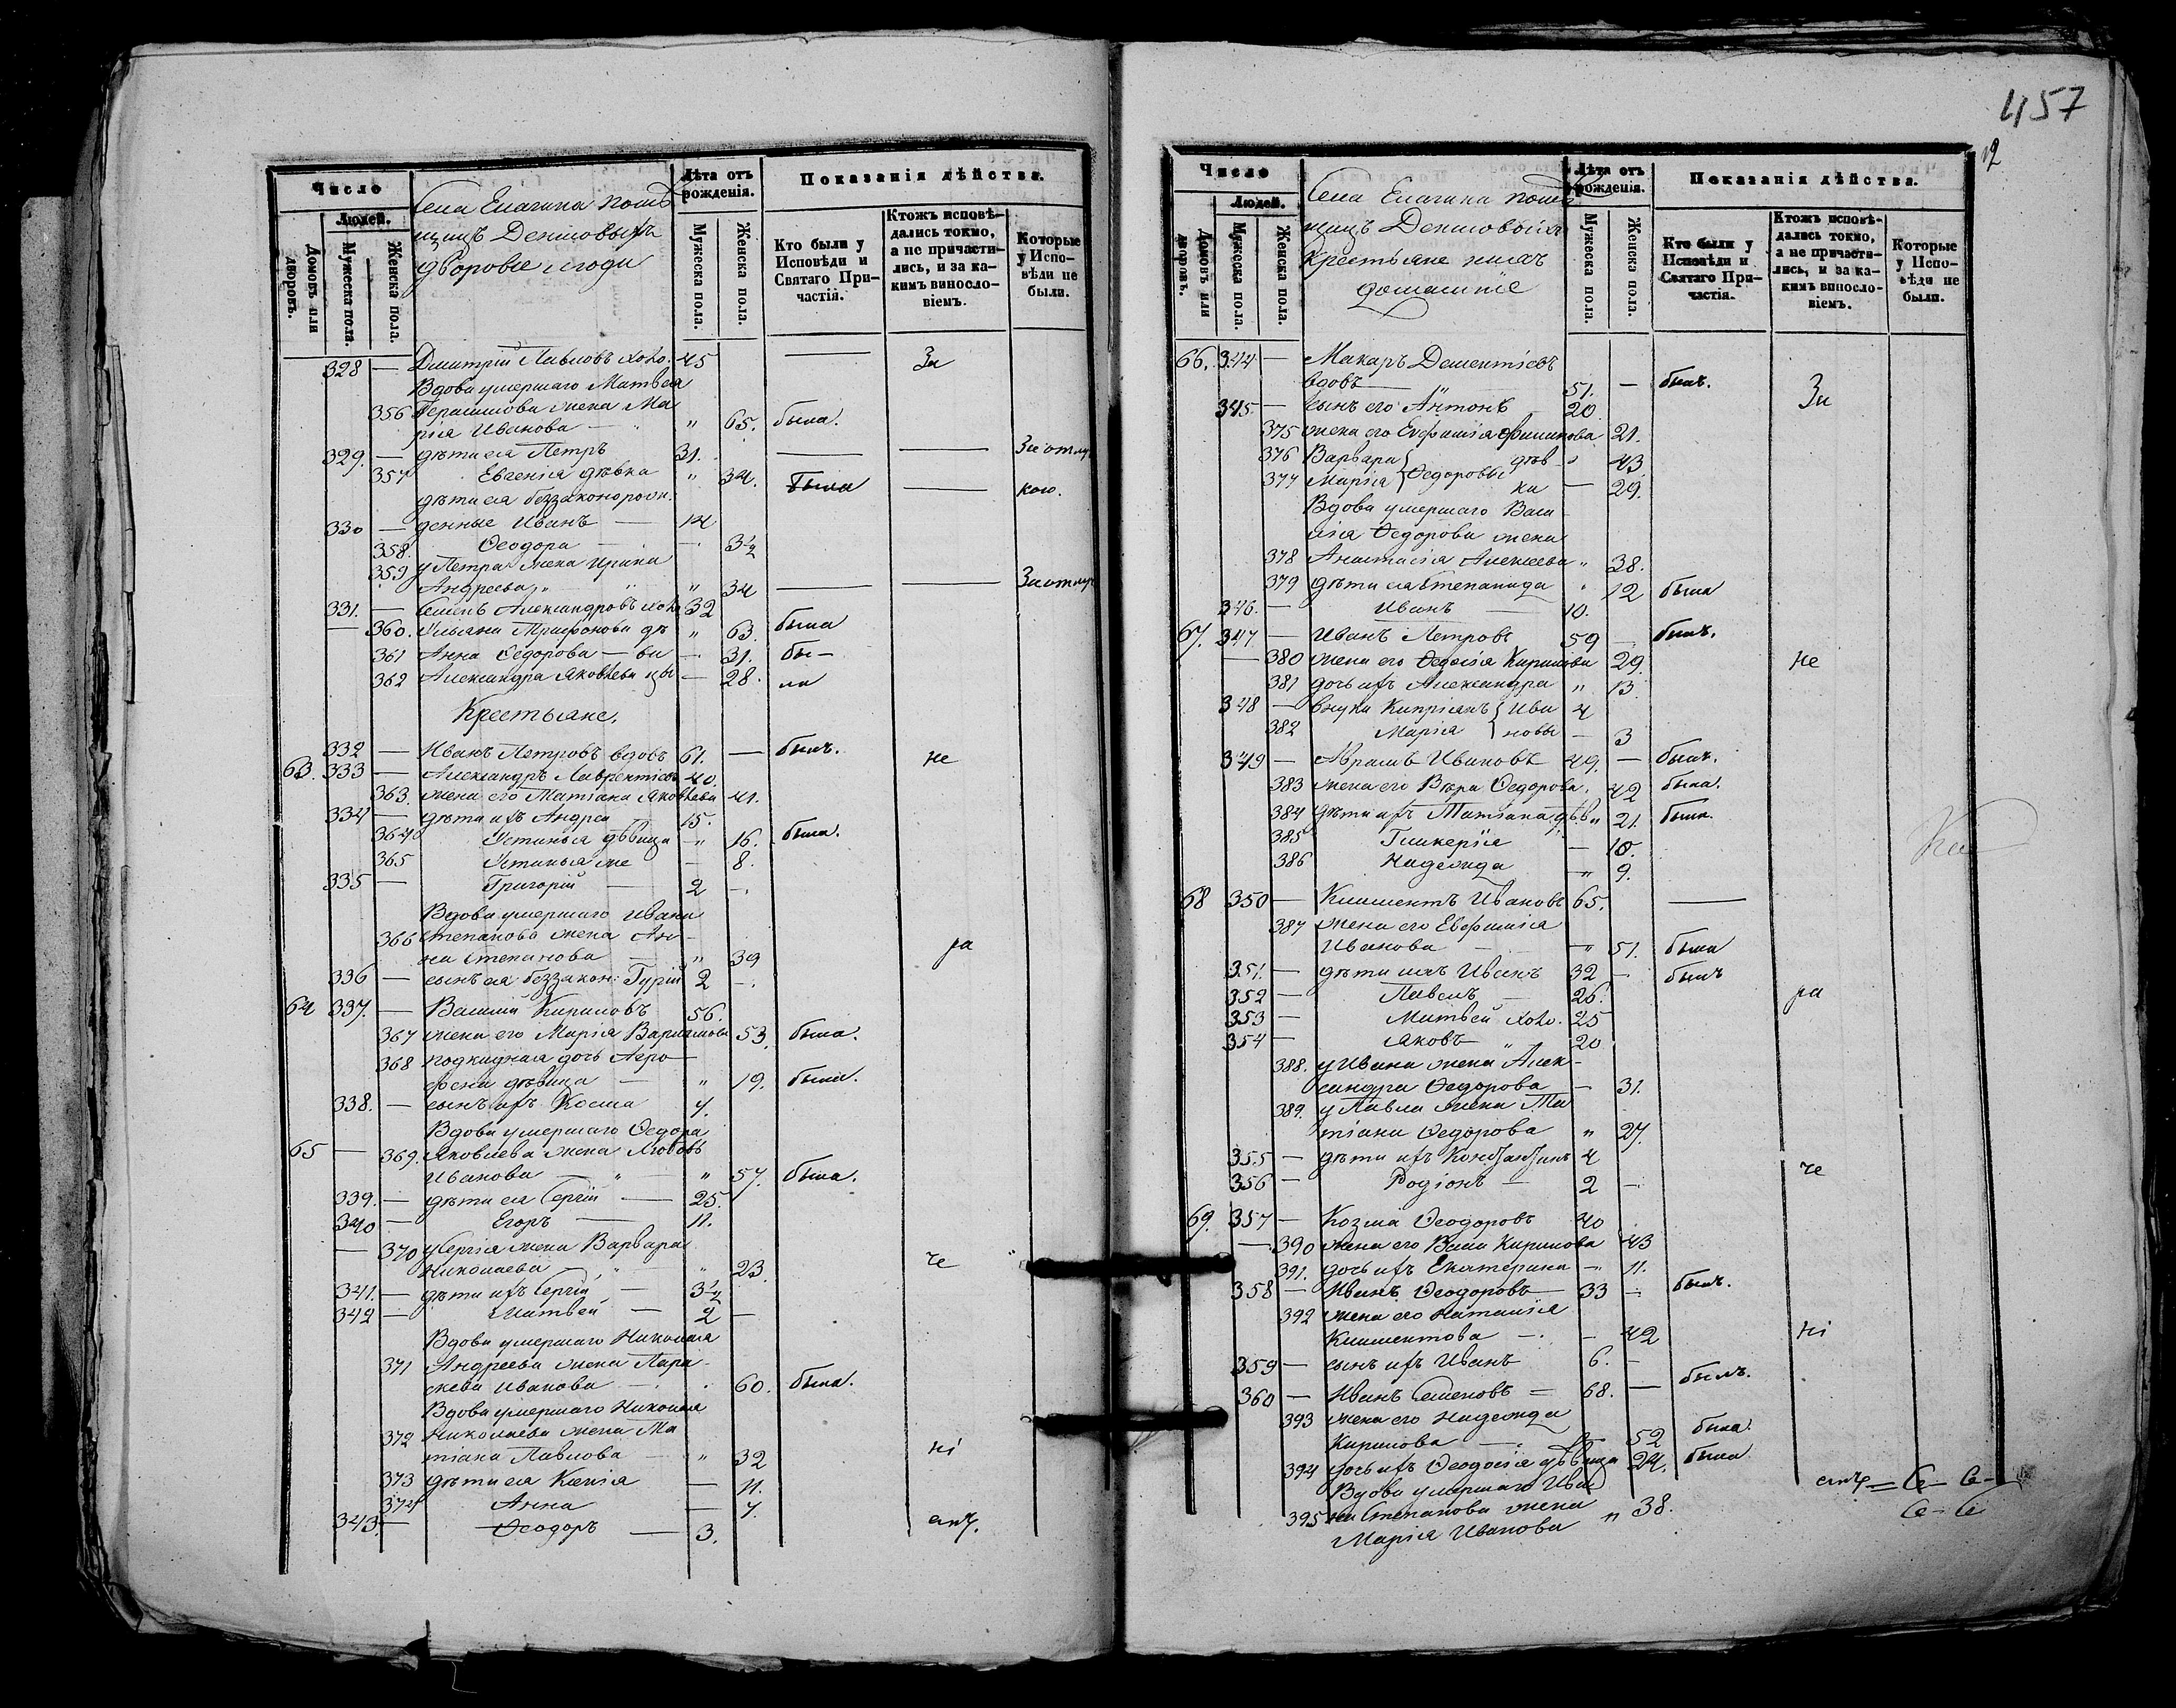 457
12
Число
Людей.
Домовъ или дворовъ.
Мужеска пола.
Женска пола.
Села Елагина помѣ
щицъ Денисовыхъ
дворовые люди
Лѣта отъ рожденія.
Мужеска пола.
Женска пола.
Показанія дѣйства.
Кто были у Исповѣди и Святаго Причастія.
Ктожъ исповѣдались токмо, а не причастились, и за какимъ винословіемъ.
Которые у Исповѣди не были.
328 — Дмитрій Павловъ холо. 45 — За
Вдова умершаго Матвея
356 Герасимова жена Ма
рія Иванова — " 65. была.
329. — дѣти ея Петръ 31. — — За отлуч
357 Евгенія дѣвка " 34. была — кою.
дѣти ея беззаконорож.
330 — денные Иванъ — 14
358. Ѳеодора — — 3½
359 у Петра жена Ирина
Андреева " " 34 — — За отлуч
331. — Семенъ Александровъ холо 32
— 360. Ульяна Трифонова дѣ " 63. была
361 Анна Ѳедорова — ви — 31. бы —
362 Александра Яковлева цы — 28. ла
Крестьяне.
332 — Иванъ Петровъ вдовъ 61. — былъ.
63. 333 — Александръ Лаврентіевъ 40. не
363. жена его Татіана Яковлева 41.
334 — дѣти ихъ Андрей 15.
364 Устинья дѣвица " 16. была.
365 Устинья же — 8.
335 — Григорій — 2 —
Вдова умершаго Ивана
366 Степанова жена Ан —
на Степанова — " 39 ра
336 — сынъ ея беззакон: Гурій 2 —
64 337. — Василій Кириловъ 56.
367 жена его Марія Варламова 53. была.
368 подкидная дочь Агра
фена дѣвица — " 19. была.
338. — сынъ ихъ Косма 7.
Вдова умершаго Ѳедора
65 — 369. Яковлева жена Любовь
Иванова — " " 57. была.
339. — дѣти ея Сергій — 25.
340 — Егоръ — 11.
— 370 у Сергія жена Варвара
Николаева — " 23. че
341. — дѣти ихъ Сергій — 3½
342 — Матвей — 2 —
Вдова умершаго Николая
371 Андреева жена Пара —
скева Иванова — 60. была.
Вдова умершаго Николая
372 Николаева жена Та
тіана Павлова — " 32 ні
373 дѣти ея Ксенія — 11.
374 Анна — 7.
343. — Ѳеодоръ — 3. емъ.
Число
Людей.
Домовъ или дворовъ.
Мужеска пола.
Женска пола.
Села Елагина помѣ
щицъ Денисовыхъ
Крестьяне ихъ
домашніе
Лѣта отъ рожденія.
Мужеска пола.
Женска пола.
Показанія дѣйства.
Кто были у Исповѣди и Святаго Причастія.
Ктожъ исповѣдались токмо, а не причастились, и за какимъ винословіемъ.
Которые у Исповѣди не были.
66. 344 — Макаръ Дементіевъ
вдовъ — " 51. — былъ. За
345 — сынъ его Антонъ 20
375 жена его Евфимія Филипова 21.
376 Варвара { дѣв — " 43
377 Марія { Ѳедоровы ки — 29.
Вдова умершаго Васи —
лія Ѳедорова жена
378 Анастасія Алексеева " 38.
379 дѣти ея Степанида " 12 была
346. — Иванъ — 10.
67. 347 — Иванъ Петровъ 59 — былъ.
— 380 жена его Ѳедосія Кирилова 29. не
381 дочь ихъ Александра " 13.
348 — внуки Кипріанъ { Ива 4
382 Марія { новы — 3
349 — Абрамъ Ивановъ 49. — былъ.
383 жена его Вѣра Ѳедорова. 42 была.
384 дѣти ихъ Татіана дѣв " 21. была.
385 Гликерія — 10.
386 Надежда — " 9.
68 350 — Климентъ Ивановъ 65. —
387 жена его Евфимія
Иванова — " 51. была
351. — дѣти ихъ Иванъ 32 — былъ
352 — Павелъ — 26. ра
353 — Матвей холо. 25
354 — Яковъ " 20
388. у Ивана жена Алек —
сандра Ѳедорова — 31.
389. у Павла жена Та
тіана Ѳедорова " 27.
355 — дѣти ихъ Константинъ 4
356 — Родіонъ — 2 — че
69. 357 — Козма Ѳеодоровъ 40
— 390 жена его Васа Кирилова 43
391. дочь ихъ Екатерина — " 11.
358 — Иванъ Ѳеодоровъ — 33 — былъ.
392 жена его Наталія
Климентова — — 42 ні
359 — сынъ ихъ Иванъ 6. —
360 — Иванъ Семеновъ = 68. — былъ.
393 жена его Надежда
Кирилова — 52 была.
394 дочь ихъ Ѳеодосія дѣвица 24. была
Вдова умершаго Ива емъ = С- С-
395 на Степанова жена С- С
Марія Иванова " 38.